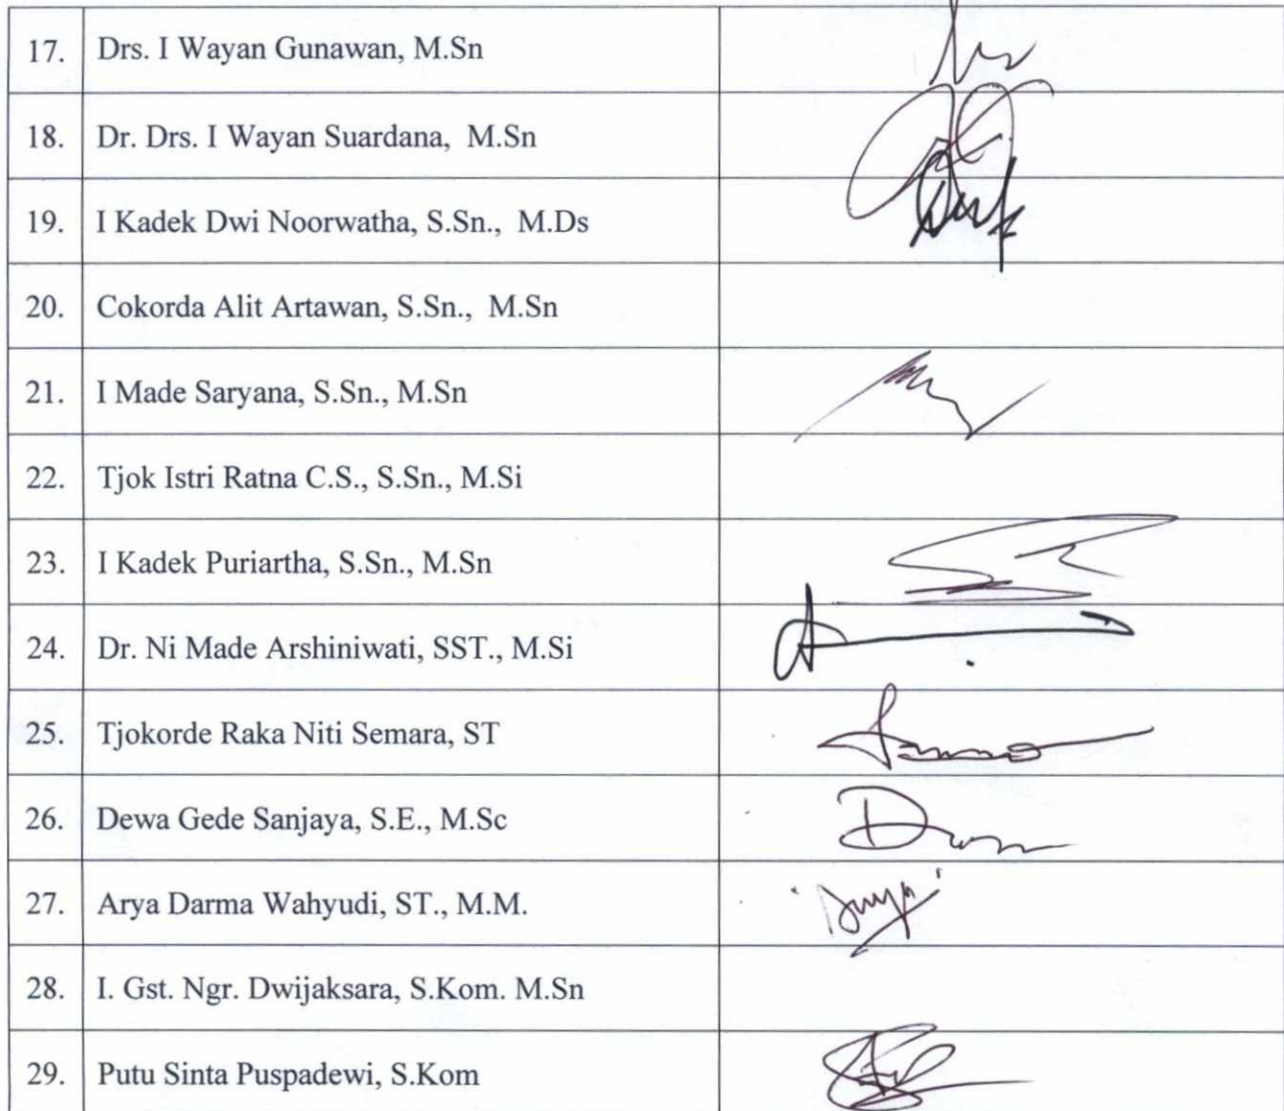 17. Drs. I Wayan Gunawan, M.Sn
18. Dr. Drs. I Wayan Suardana, M.Sn
19. I Kadek Dwi Noorwatha, S.Sn., M.Ds
20. Cokorda Alit Artawan, S.Sn., M.Sn
21. I Made Saryana, S.Sn., M.Sn
22. Tjok Istri Ratna C.S., S.Sn., M.Si
23. I Kadek Puriartha, S.Sn., M.Sn
24. Dr. Ni Made Arshiniwati, SST., M.Si
25. Tjokorde Raka Niti Semara, ST
26. Dewa Gede Sanjaya, S.E., M.Sc
27. Arya Darma Wahyudi, ST., M.M.
28. I. Gst. Ngr. Dwijaksara, S.Kom. M.Sn
29. Putu Sinta Puspadewi, S.Kom